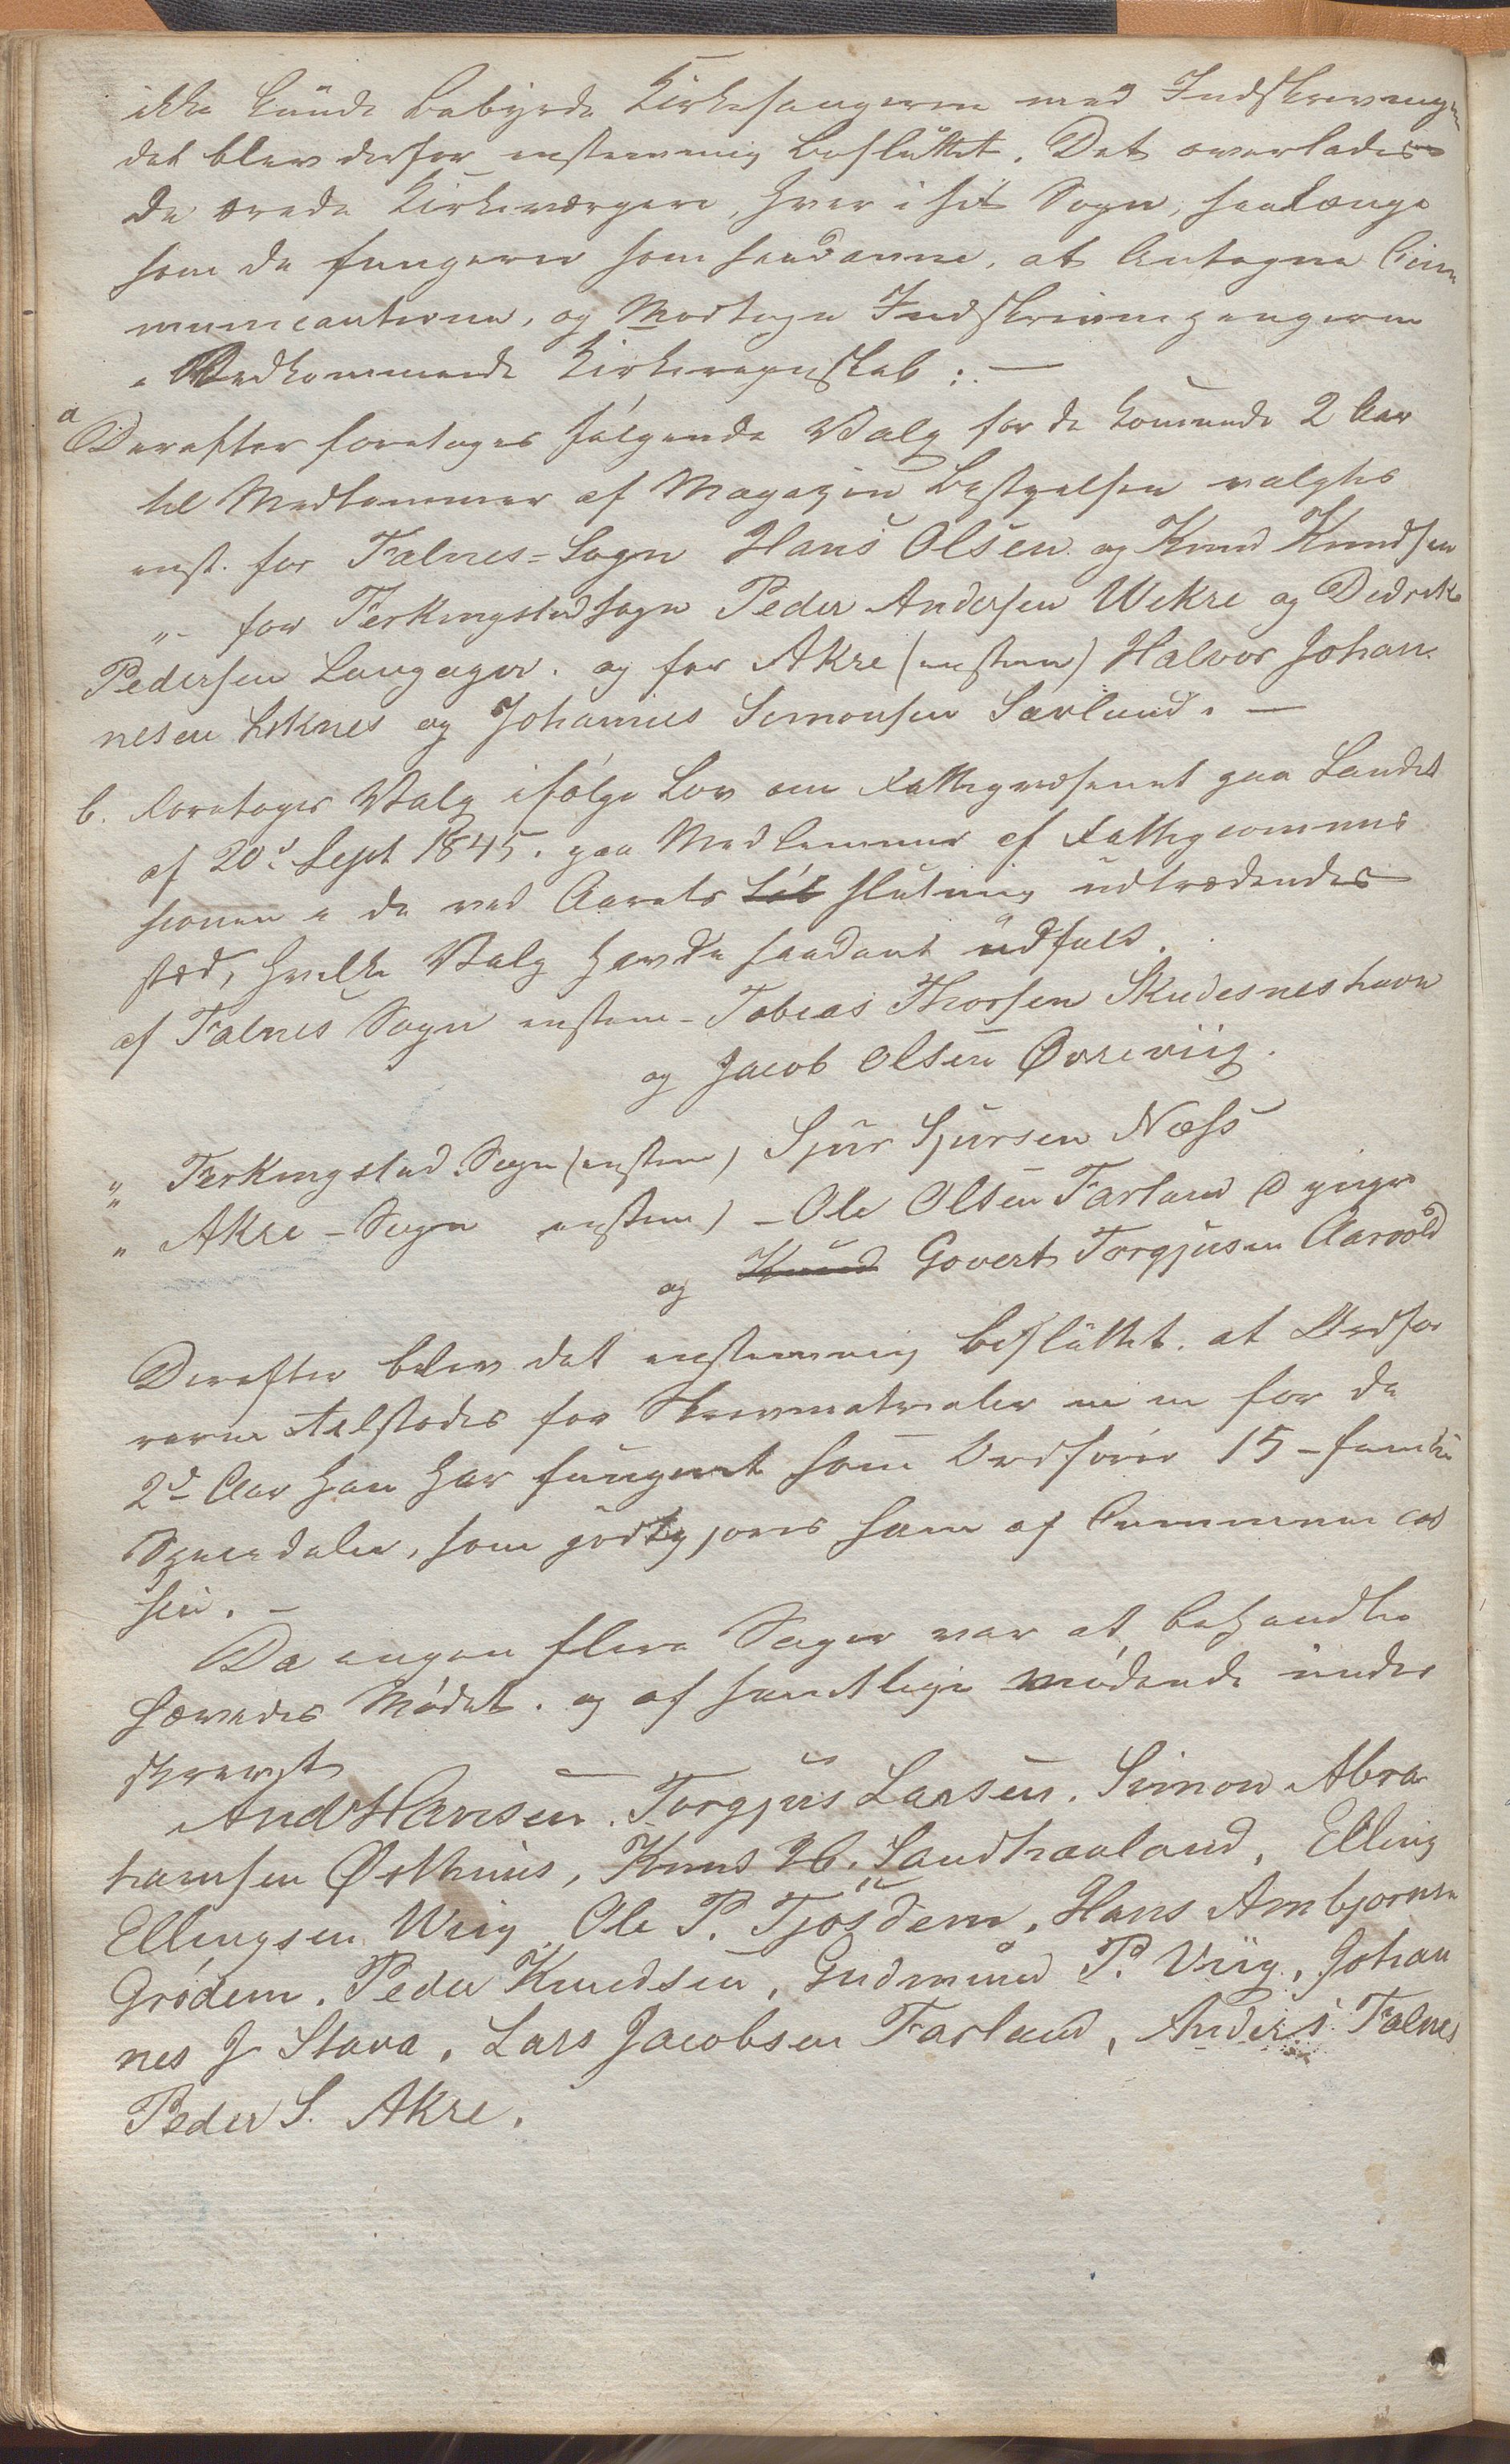 ikke kunde bebyrde Kirkesangerne med Indskrivningen
det blev derfor enstemmig besluttet. Det overlades
de ærede Kirkeværgere, hver i sit Sogn, saalænge
som de fungerer som saadanne, at antegne Com
municantere, og Modtage Indskrivningspengerne
Vedkommende Kirkeregnskab :. —
a Derefter foretoges følgende Valg for de kommende 2 Aar
til Medlemmer af Magazin Bestyrelsen valgtes
enst. for Falnes-Sogn Hans Olsen og Knud Knudsen
„- for Ferkingstad sogn Peder Andersen Wikre og Didrik
Pedersen Langager. og for Akre (enstem) Halvor Johan-
nesen Liknes og Johannes Simonsen Sørlund. —
b. Foretoges Valg ifølge Lov om Fattigvæsenet paa Landet
af 20d Sept 1845. paa Medlemmer af Fattigcommis
sionen i de ved Aarets Løb slutning udtrædendes
sted, hvilke Valg havde saadant udfald.
af Falnes Sogn enstem- Tobias Thorsen Skudesneshavn
og Jacob Olsen Øvreviig.
„ Ferkingstad Sogn (enstem) Sjur Sjursen Næss
„ Akre-Sogn enstem) - Ole Olsen Farland D yngre
og Knud Govert Torgjusen Aarvold
Derefter blev det enstemmig besluttet. at Ordfø
reren tilstodes for Skrivmatrialer m m for de
2d Aar han har fungeret som Ordfører 15 - femten
Speciedaler, som godtgjøres ham af Communecas
sen. -
Da ingen flere Sager var at behandle
hævedes Mødet. og af samtlige mødende under
skrevet
And Hansen. Torgjus Larsen. Simon Abra
hamsen Østhuus, Knud H. Sandhaaland, Elling
Ellingsen Wiig Ole P. Tjøsdem, Hans Arnbjørnsen
Grødem. Peder Knudsen, Gudmund P. Viig, Johan
nes J Stava. Lars Jacobsen Farland, Anders Falnes
Peder S. Akre.